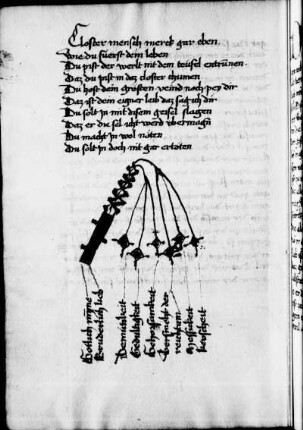 Closter mensch merck gar eben
Wie du füerst dein leben
Du pist der werlt mit dem teüfel entrunen
Daz du pist in daz closter chumen
Du hast dein grösten veind noch pey dir
Daz ist dein eigner leib daz sag ich dir
Du solt in mit disem geisel slagen
Daz er die sel icht werd
Du macht in wol nöten
Du solt in doch nit gar ertöten
Götlich mynne
Bruderlich lieb
Demütikeit
Gedultigkeit
Gehorsamkeit
Versmecht der
reichtum
Messikeit
keuscheit